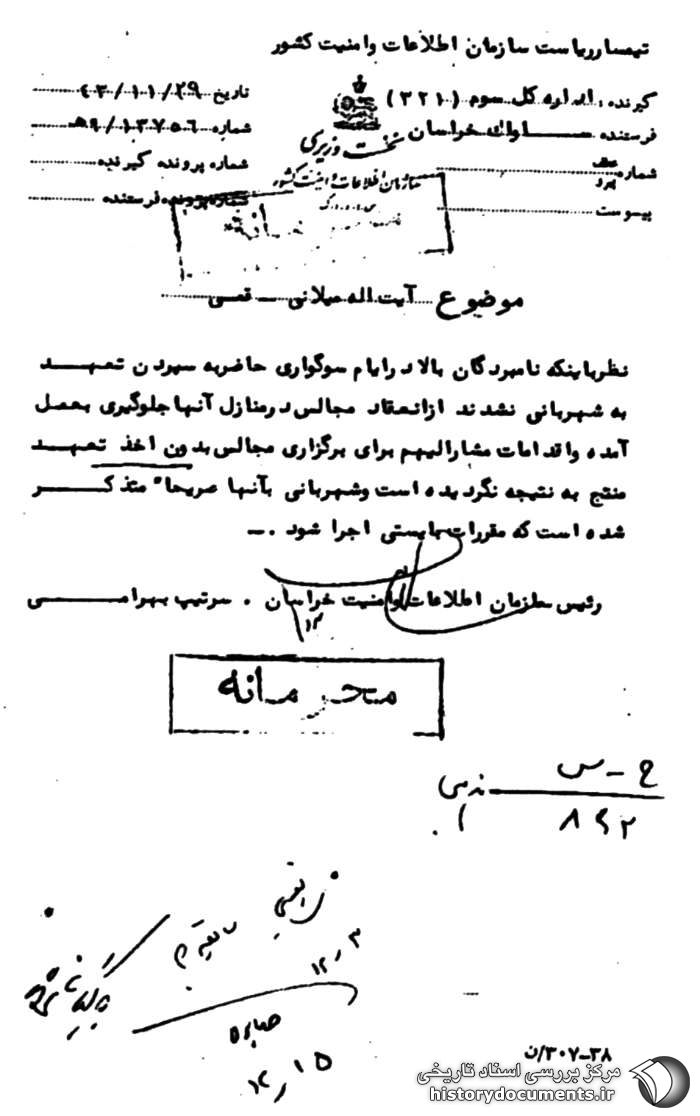 تیمسار ریاست سازمان اطلاعات و امنیت کشور
گیرنده: اداره کل سوم (۳۲۱)
تاریخ ۴۳/۱۱/۲۹
فرستنده ساواک خراسان
شماره ۹/۱۳۷۵۶ھ
نخست وزیری
شماره
شماره پرونده گیرنده
سازمان اطلاعات و امنیت کشور
س.ا.و.ا.ک
پیوست
شماره پرونده فرستنده
موضوع آیت اله میلانی - قمی
نظر باینکه نامبردگان بالا در ایام سوگواری حاضر به سپردن تعهد
به شهربانی نشدند از انعقاد مجالس در منازل آنها جلوگیری بعمل
آمده و اقدامات مشارالیهم برای برگزاری مجالس بدون اخذ تعهد
منتج به نتیجه نگردیده است و شهربانی بآنها صریحا" متذکر
شده است که مقررات بایستی اجرا شود .-
رئیس سازمان اطلاعات و امنیت خراسان . سرتیپ بهرامی
محرمانه
ح - س
۸۶۲
۳ر۱۲
۱۵ر۱۲
۳۸-۳۰۷/ن
مرکز بررسی اسناد تاریخی
historydocuments.ir